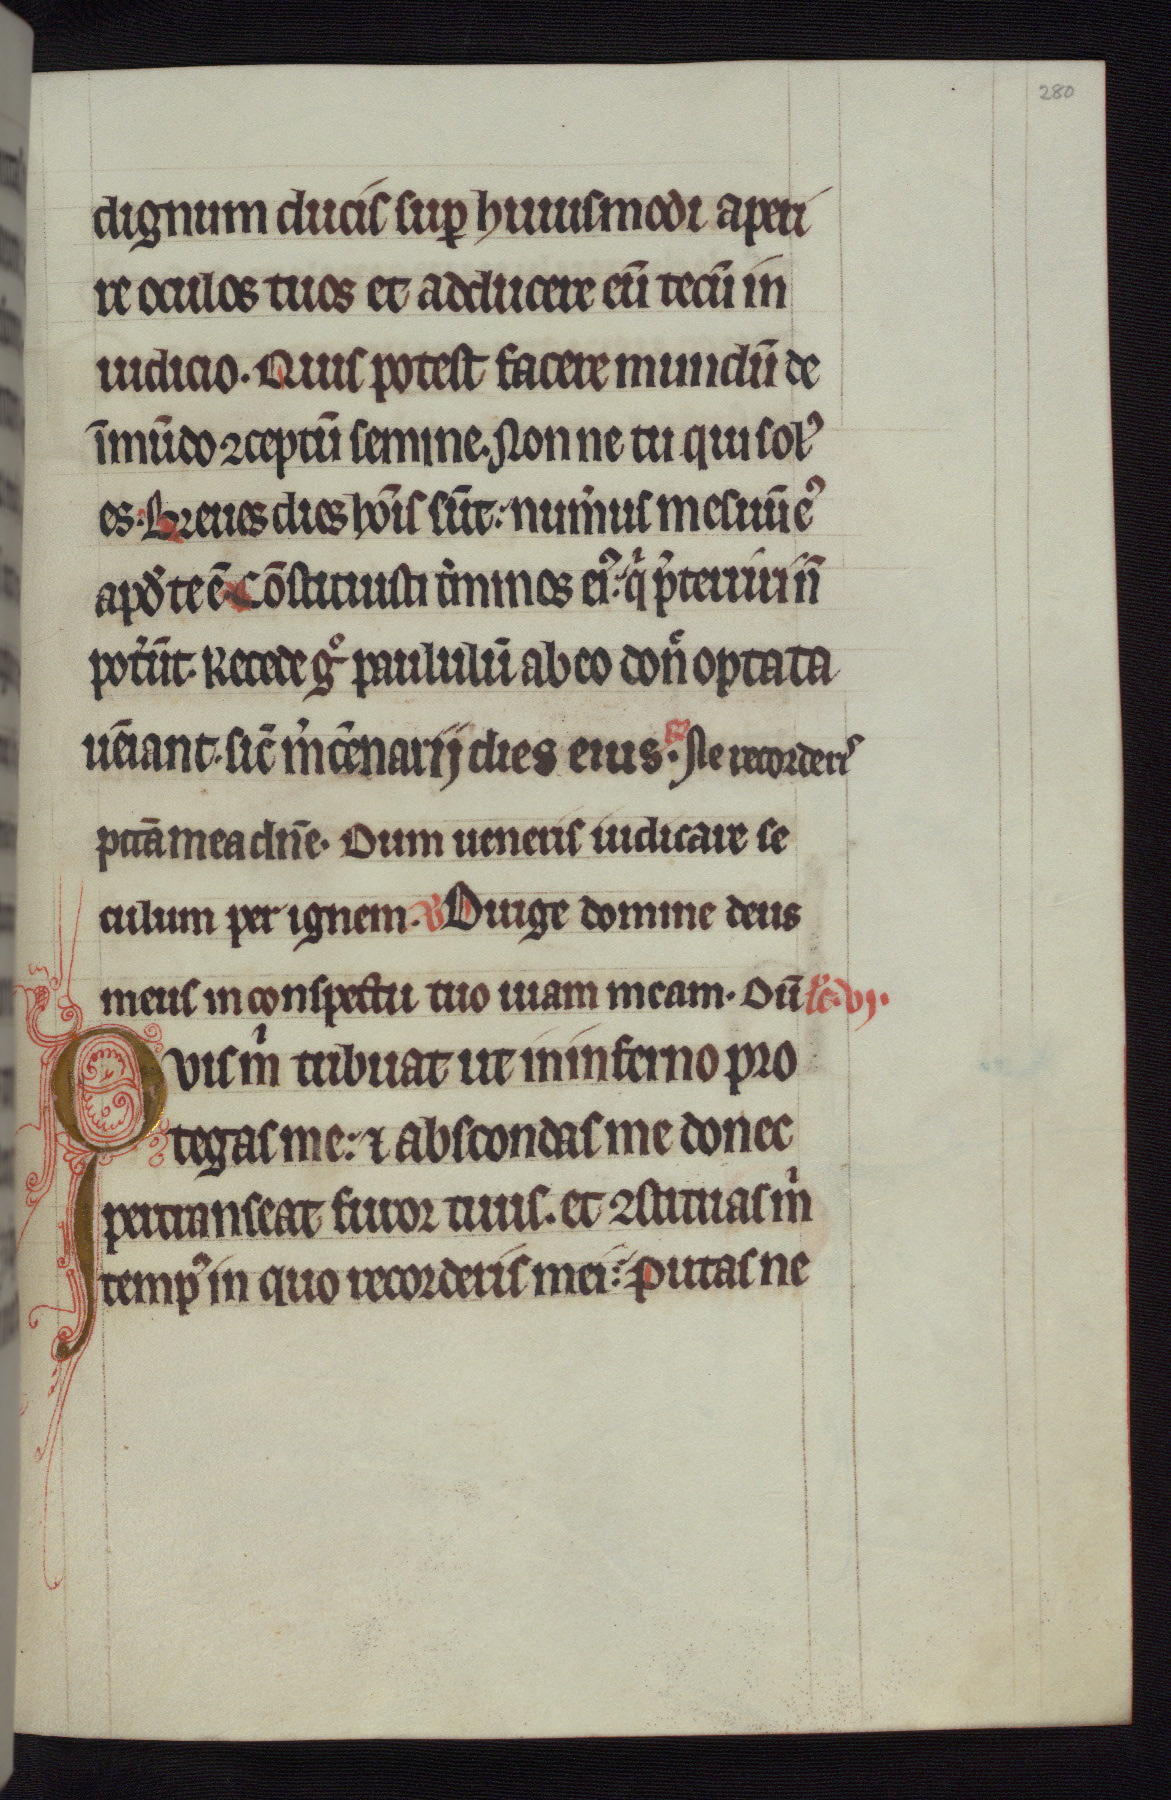 280
dignum ducis suꝑ huiusmodi aperi
re oculos tuos et adducere eū tecū in
iudicio. Quis potest facere mundū de
īmūdo ꝯceptū semine. Nonne tu qui solꝰ
es. Breues dies hoīs sūt: num̉us mēsiuū eꝰ
apd̉ te ē. Cōstituisti t̉minos eiꝰ: q̉ p̄teriri n̄
pot̉ūt. Recede gͦ paululū ab eo donͨ optata
ueniant. sic̄ m̉cēnarij dies eius. R̉. Ne recorderis
pctā mea dn̄e. Dum ueneris iudicare se
culum per ignem. V̉. Dirige domine deus
meus in conspectu tuo uiam meam. Dū lc̄. vj.
Quis m̉ tribuat ut in inferno pro
tegas me: ⁊ abscondas me donec
pertranseat furor tuus. et ꝯstituas m̉
tempꝰ in quo recorderis mei: Putas ne